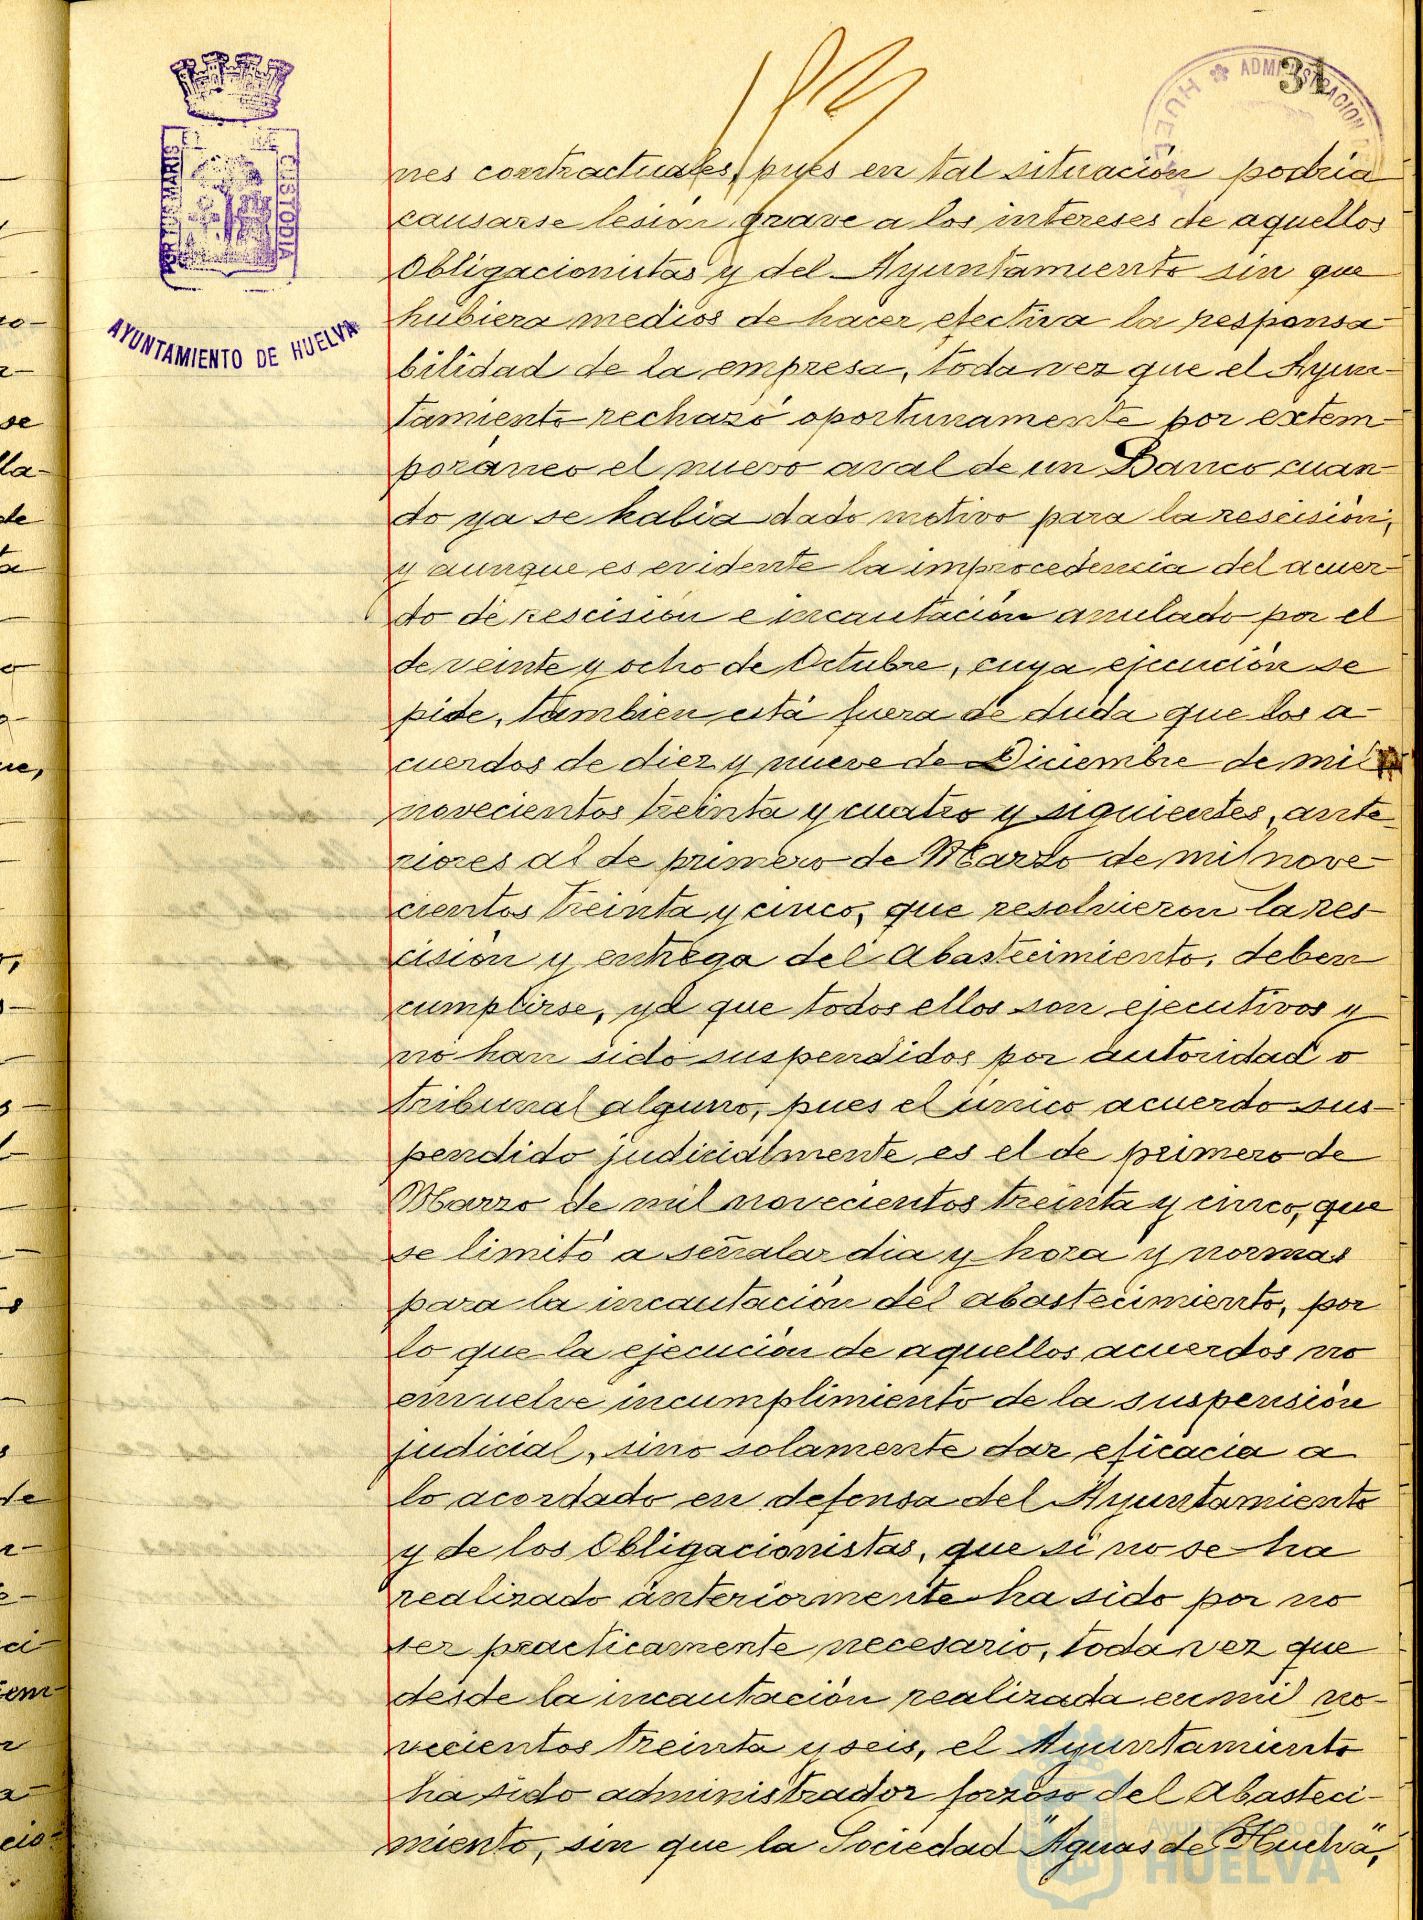 31
ADMINISTRACION
HUELVA
PORTUS MARIS
CUSTODIA
AYUNTAMIENTO DE HUELVA
nes contractuales, pues en tal situación podria
causarse lesión grave a los intereses de aquellos
Obligacionistas y del Ayuntamiento sin que
hubiera medios de hacer efectiva la responsa-
bilidad de la empresa, toda vez que el Ayun-
tamiento rechazó oportunamente por extem-
poráneo el nuevo aval de un Banco cuan-
do ya se habia dado motivo para la rescisión,
y aunque es evidente la improcedencia del acuer-
do de rescisión e incautación anulado por el
de veinte y ocho de Octubre, cuya ejecución se
pide, tambien está fuera de duda que los a-
cuerdos de diez y nueve de Diciembre de mil
novecientos treinta y cuatro y siguientes, ante-
riores al de primero de Marzo de mil nove-
cientos treinta y cinco, que resolvieron la res-
cisión y entrega del Abastecimiento, deben
cumplirse, ya que todos ellos son ejecutivos y
no han sido suspendidos por autoridad o
tribunal alguno, pues el único acuerdo sus-
pendido judicialmente es el de primero de
Marzo de mil novecientos treinta y cinco, que
se limitó a señalar dia y hora y normas
para la incautación del abastecimiento, por
lo que la ejecución de aquellos acuerdos no
envuelve incumplimiento de la suspensión
judicial, sino solamente dar eficacia a
lo acordado en defensa del Ayuntamiento
y de los Obligacionistas, que si no se ha
realizado anteriormente ha sido por no
ser practicamente necesario, toda vez que
desde la incautación realizada en mil no-
vecientos treinta y seis, el Ayuntamiento
ha sido administrador forzoso del Abasteci-
miento, sin que la Sociedad "Aguas de Huelva",
Ayuntamiento de
HUELVA